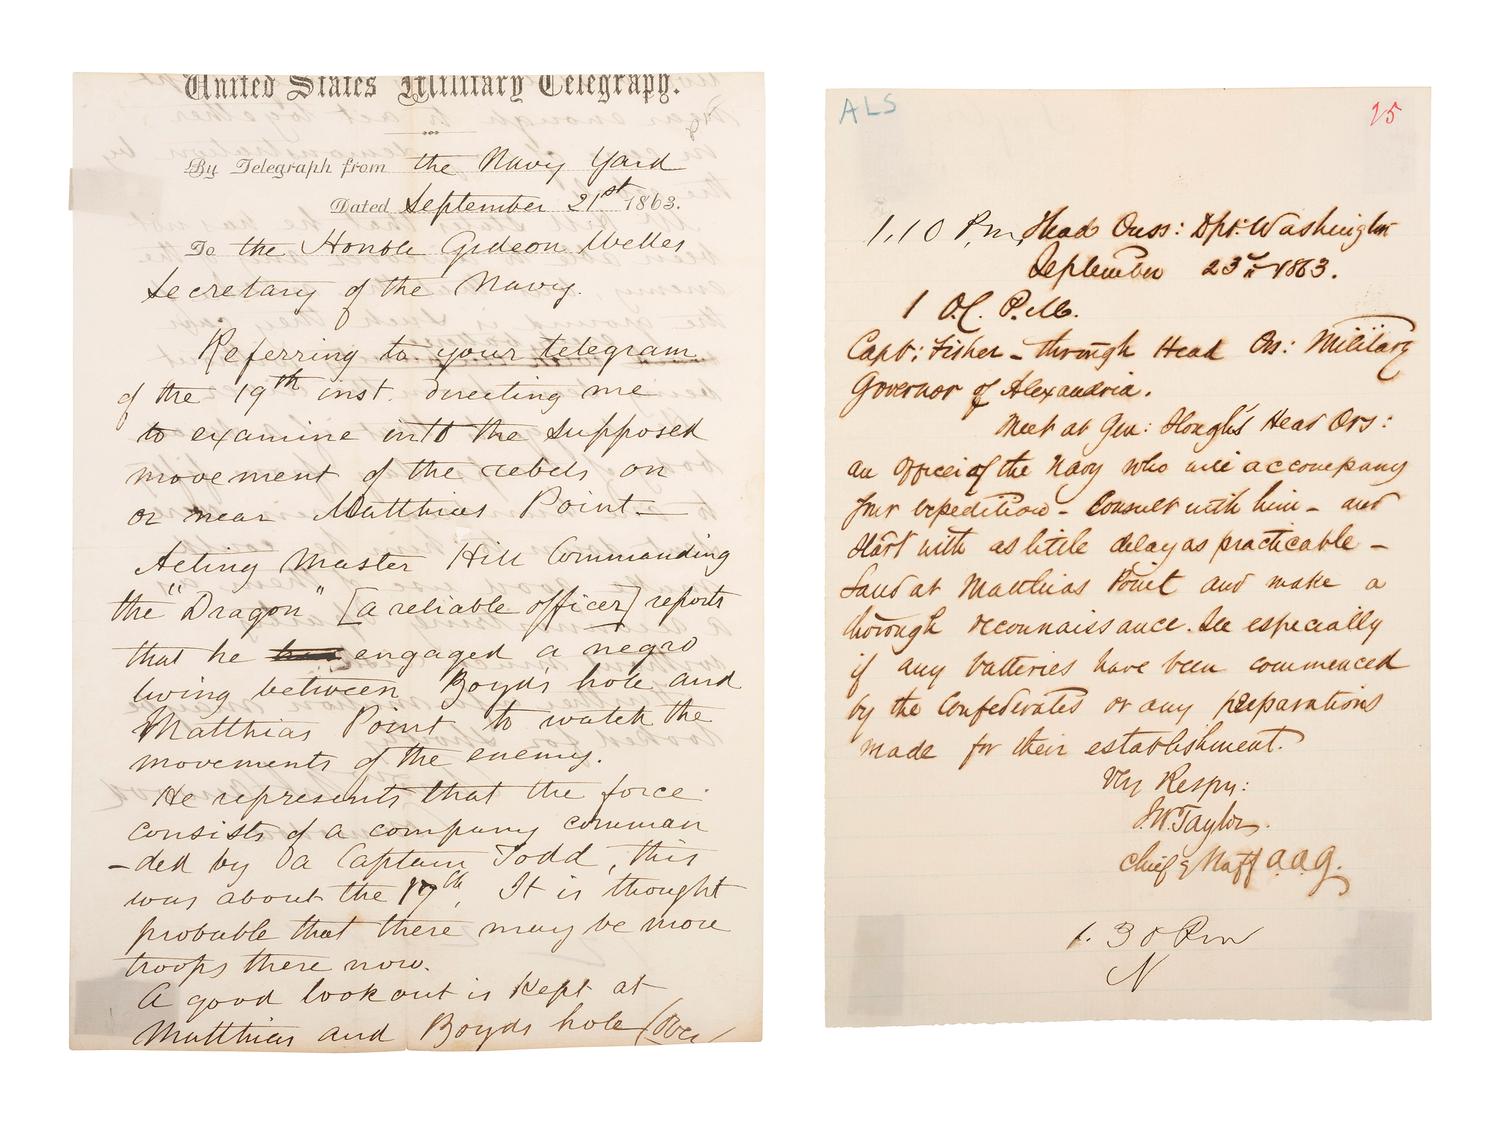 United States Military Telegraph.
By Telegraph from the Navy Yard
Dated September 21st 1863.
To the Honble Gideon Welles
Secretary of the Navy.
Referring to your telegram
of the 19th inst. directing me
to examine into the supposed
movement of the rebels on
or near Matthias Point—
Acting Master Hill Commanding
the "Dragon" [a reliable officer] reports
that he engaged a negro
living between Boyd's hole and
Matthias Point to watch the
movements of the enemy.
He represents that the force
consists of a company comman
-ded by a Captain Todd, this
was about the 17th. It is thought
probable that there may be more
troops there now.
A good lookout is kept at
Matthias and Boyds hole (Over
ALS
15
1.10 P.m. Head Qurs: Dpt. Washington
September 23rd 1863.
1 O.C. P.M.
Capt: Fisher – through Head Qrs: Military
Governor of Alexandria.
Meet at Gen: Slough's Head Qrs:
an officer of the Navy who will accompany
your expedition – Consult with him – and
start with as little delay as practicable –
Land at Matthias Point and make a
thorough reconnaissance. See especially
if any batteries have been commenced
by the Confederates or any preparations
made for their establishment.
Vry Respy:
J.W. Taylor.
Chief of Staff A.A.G.
1.30 Pm
N